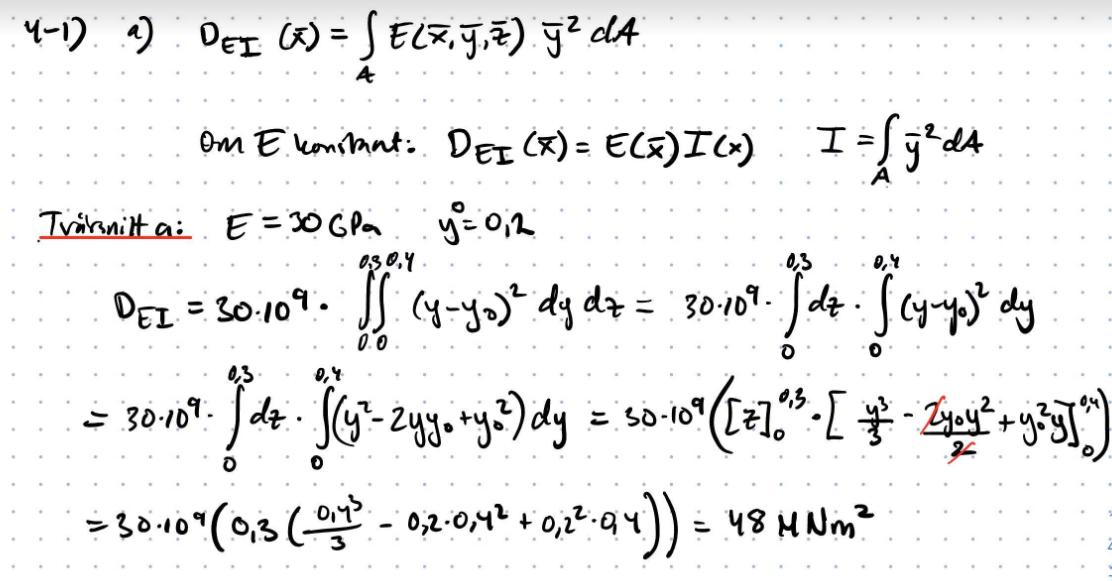 4-1) a) D_EI (x̄) = ∫_A E(x̄, ȳ, z̄) ȳ² dA
Om E konstant: D_EI (x̄) = E(x̄) I(x) I = ∫_A ȳ² dA
Tvärsnitt a: E = 30 GPa y⁰ = 0,2
D_EI = 30·10⁹ · ∫₀^0,3 ∫₀^0,4 (y-y₀)² dy dz = 30·10⁹ · ∫₀^0,3 dz · ∫₀^0,4 (y-y₀)² dy
= 30·10⁹ · ∫₀^0,3 dz · ∫₀^0,4 (y² - 2yy₀ + y₀²) dy = 30·10⁹ ([z]₀^0,3 · [y³/3 - 2y₀y²/2 + y₀²y]₀^0,4)
= 30·10⁹ (0,3 (0,4³/3 - 0,2·0,4² + 0,2²·0,4)) = 48 MNm²